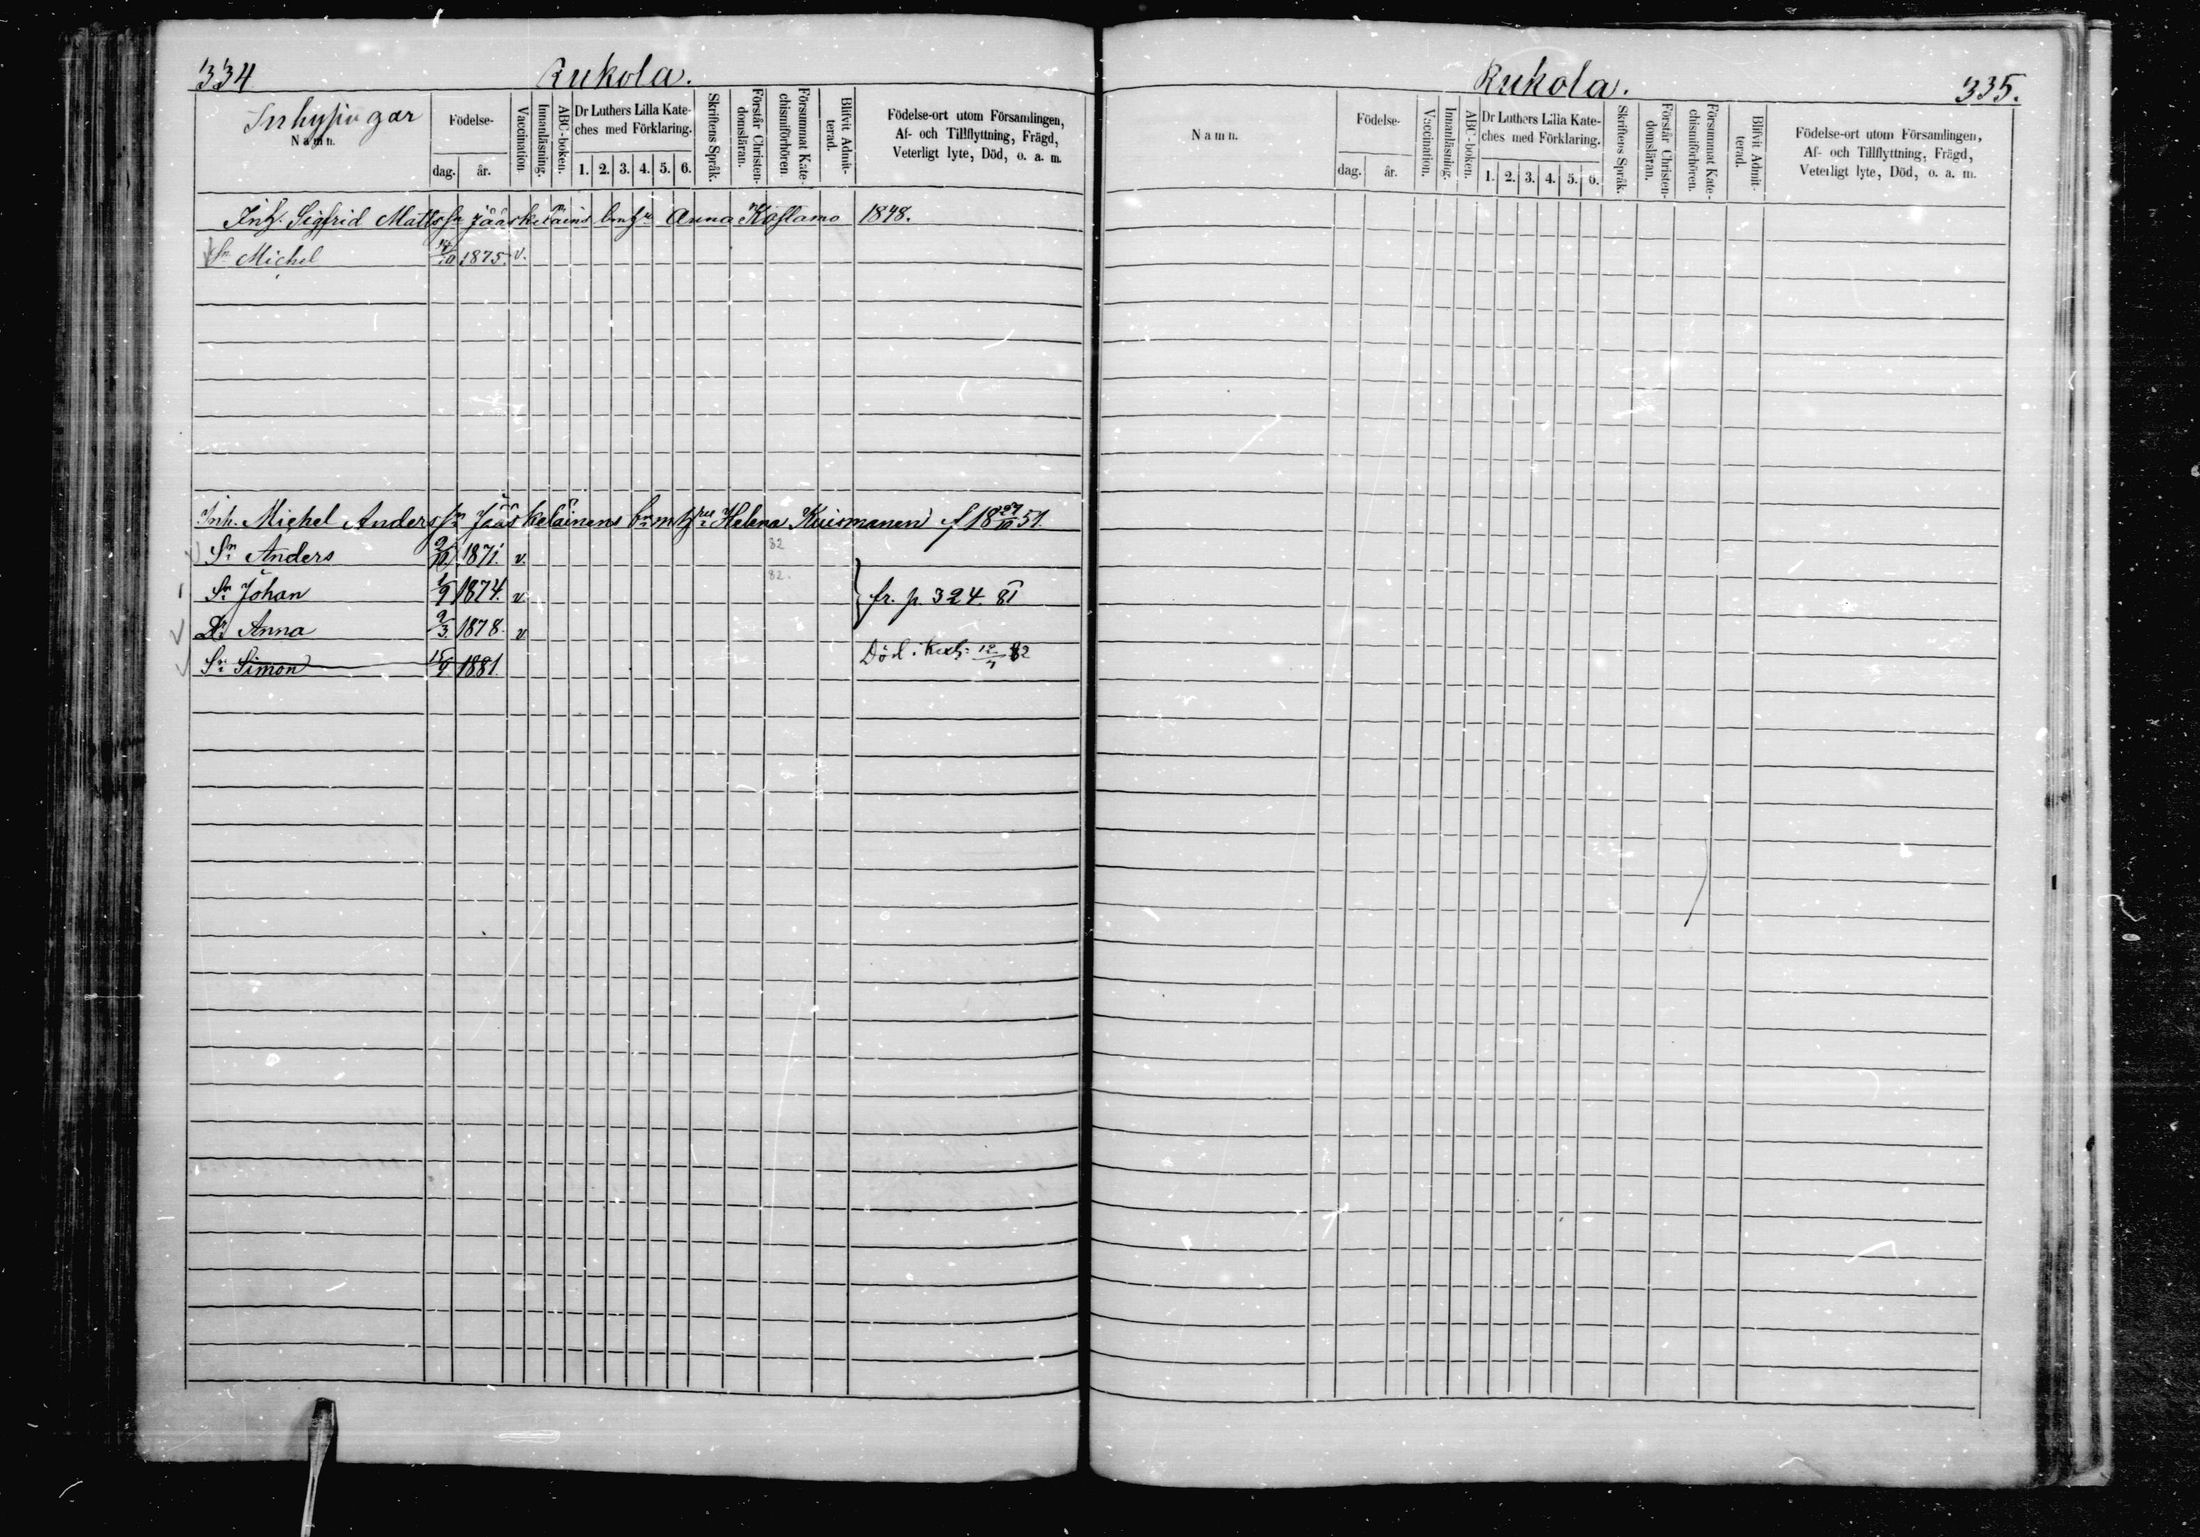 334 Rukola.
Inhysingar
Namn.
Födelse-
dag. år.
Vaccination.
Innanläsning.
ABC-boken.
Dr Luthers Lilla Kate-
ches med Förklaring.
1. 2. 3. 4. 5. 6.
Skriftens Språk.
Förstår Christen-
domsläran.
Försummat Kate-
chismiförhören.
Blifvit Admit-
terad.
Födelse-ort utom Församlingen,
Af- och Tillflyttning, Frägd,
Veterligt lyte, Död, o. a. m.
Inh. Sigfrid Matts sn Jääskeläins Anna 1848.
Sn Michel 1875. v.
Inh. Michel Anders sn Jääskeläinens Helena Kuismanen f 18 27/11 51.
82
Sn Anders 9/10 1871. v.
82.
Sn Johan 1/9 1874. v. fr. p. 324. 81
Dr Anna 9/3 1878. v
Sn Simon 15/9 1881. Död i 12/7 82
Rukola. 335.
Namn.
Födelse-
dag. år.
Vaccination.
Innanläsning.
ABC-boken.
Dr Luthers Lilla Kate-
ches med Förklaring.
1. 2. 3. 4. 5. 6.
Skriftens Språk.
Förstår Christen-
domsläran.
Försummat Kate-
chismiförhören.
Blifvit Admit-
terad.
Födelse-ort utom Församlingen,
Af- och Tillflyttning, Frägd,
Veterligt lyte, Död, o. a. m.